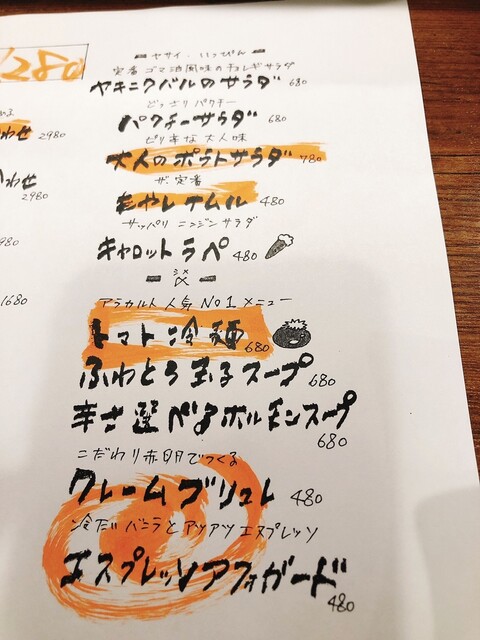 1280
わせ 2980
わせ
2980
980
1680
ヤサイ・いっぴん
定番ゴマ油風味のチョレギサラダ
ヤキニクバルのサラダ 680
どっさりパクチー
パクチーサラダ 680
ピリ辛な大人味
大人のポテトサラダ 780
ザ・定番
もやしナムル 480
サッパリニンジンサラダ
キャロットラペ 480
〆
アラカルト人気No1メニュー
トマト冷麺 680
ふわとろ玉子スープ 680
辛さ選べるホルモンスープ
680
こだわり赤卵でつくる
クレームブリュレ 480
冷たいバニラとアツアツエスプレッソ
エスプレッソアフォガード
480